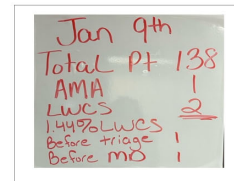 Jan 9th
Total Pt 138
AMA 1
LWCS 2
1.44% LWCS
Before triage 1
Before MD 1